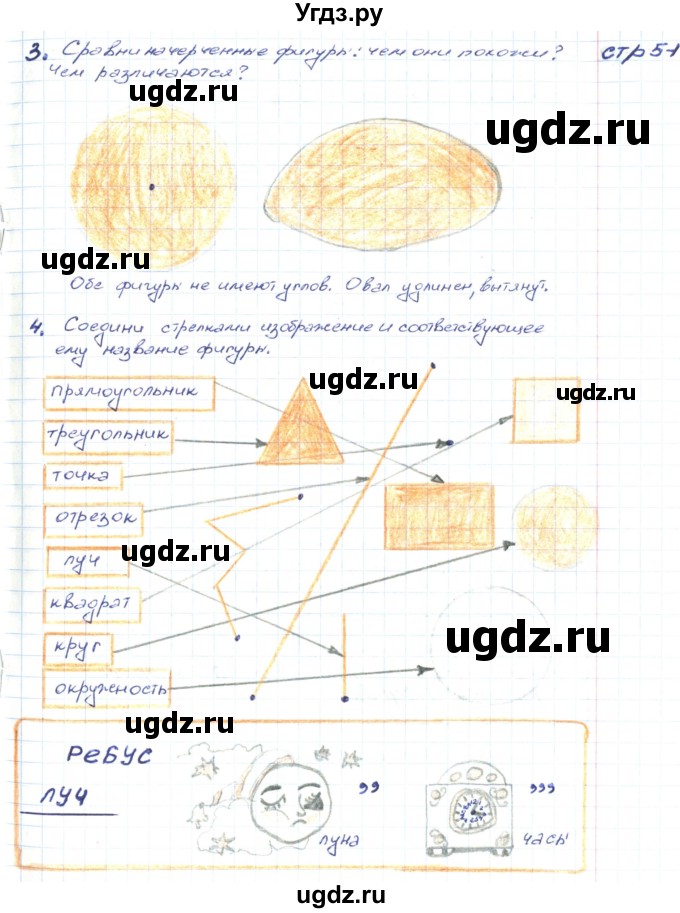 Угдз.ру
3. Сравни начерченные фигуры: чем они похожи? стр 51
Чем различаются?
ugdz.ru
ugdz.ru
ugdz.ru
ugdz.ru
Обе фигуры не имеют углов. Овал удлинен, вытянут.
4. Соедини стрелками изображение и соответствующее
ему название фигуры.
ugdz.ru
ugdz.ru
прямоугольник
треугольник
точка
отрезок
ugdz.ru
луч
квадрат
ugdz.ru
круг
окружность
ugdz.ru
ребус
луч
,,
,,,
луна
часы
ugdz.ru
ugdz.ru